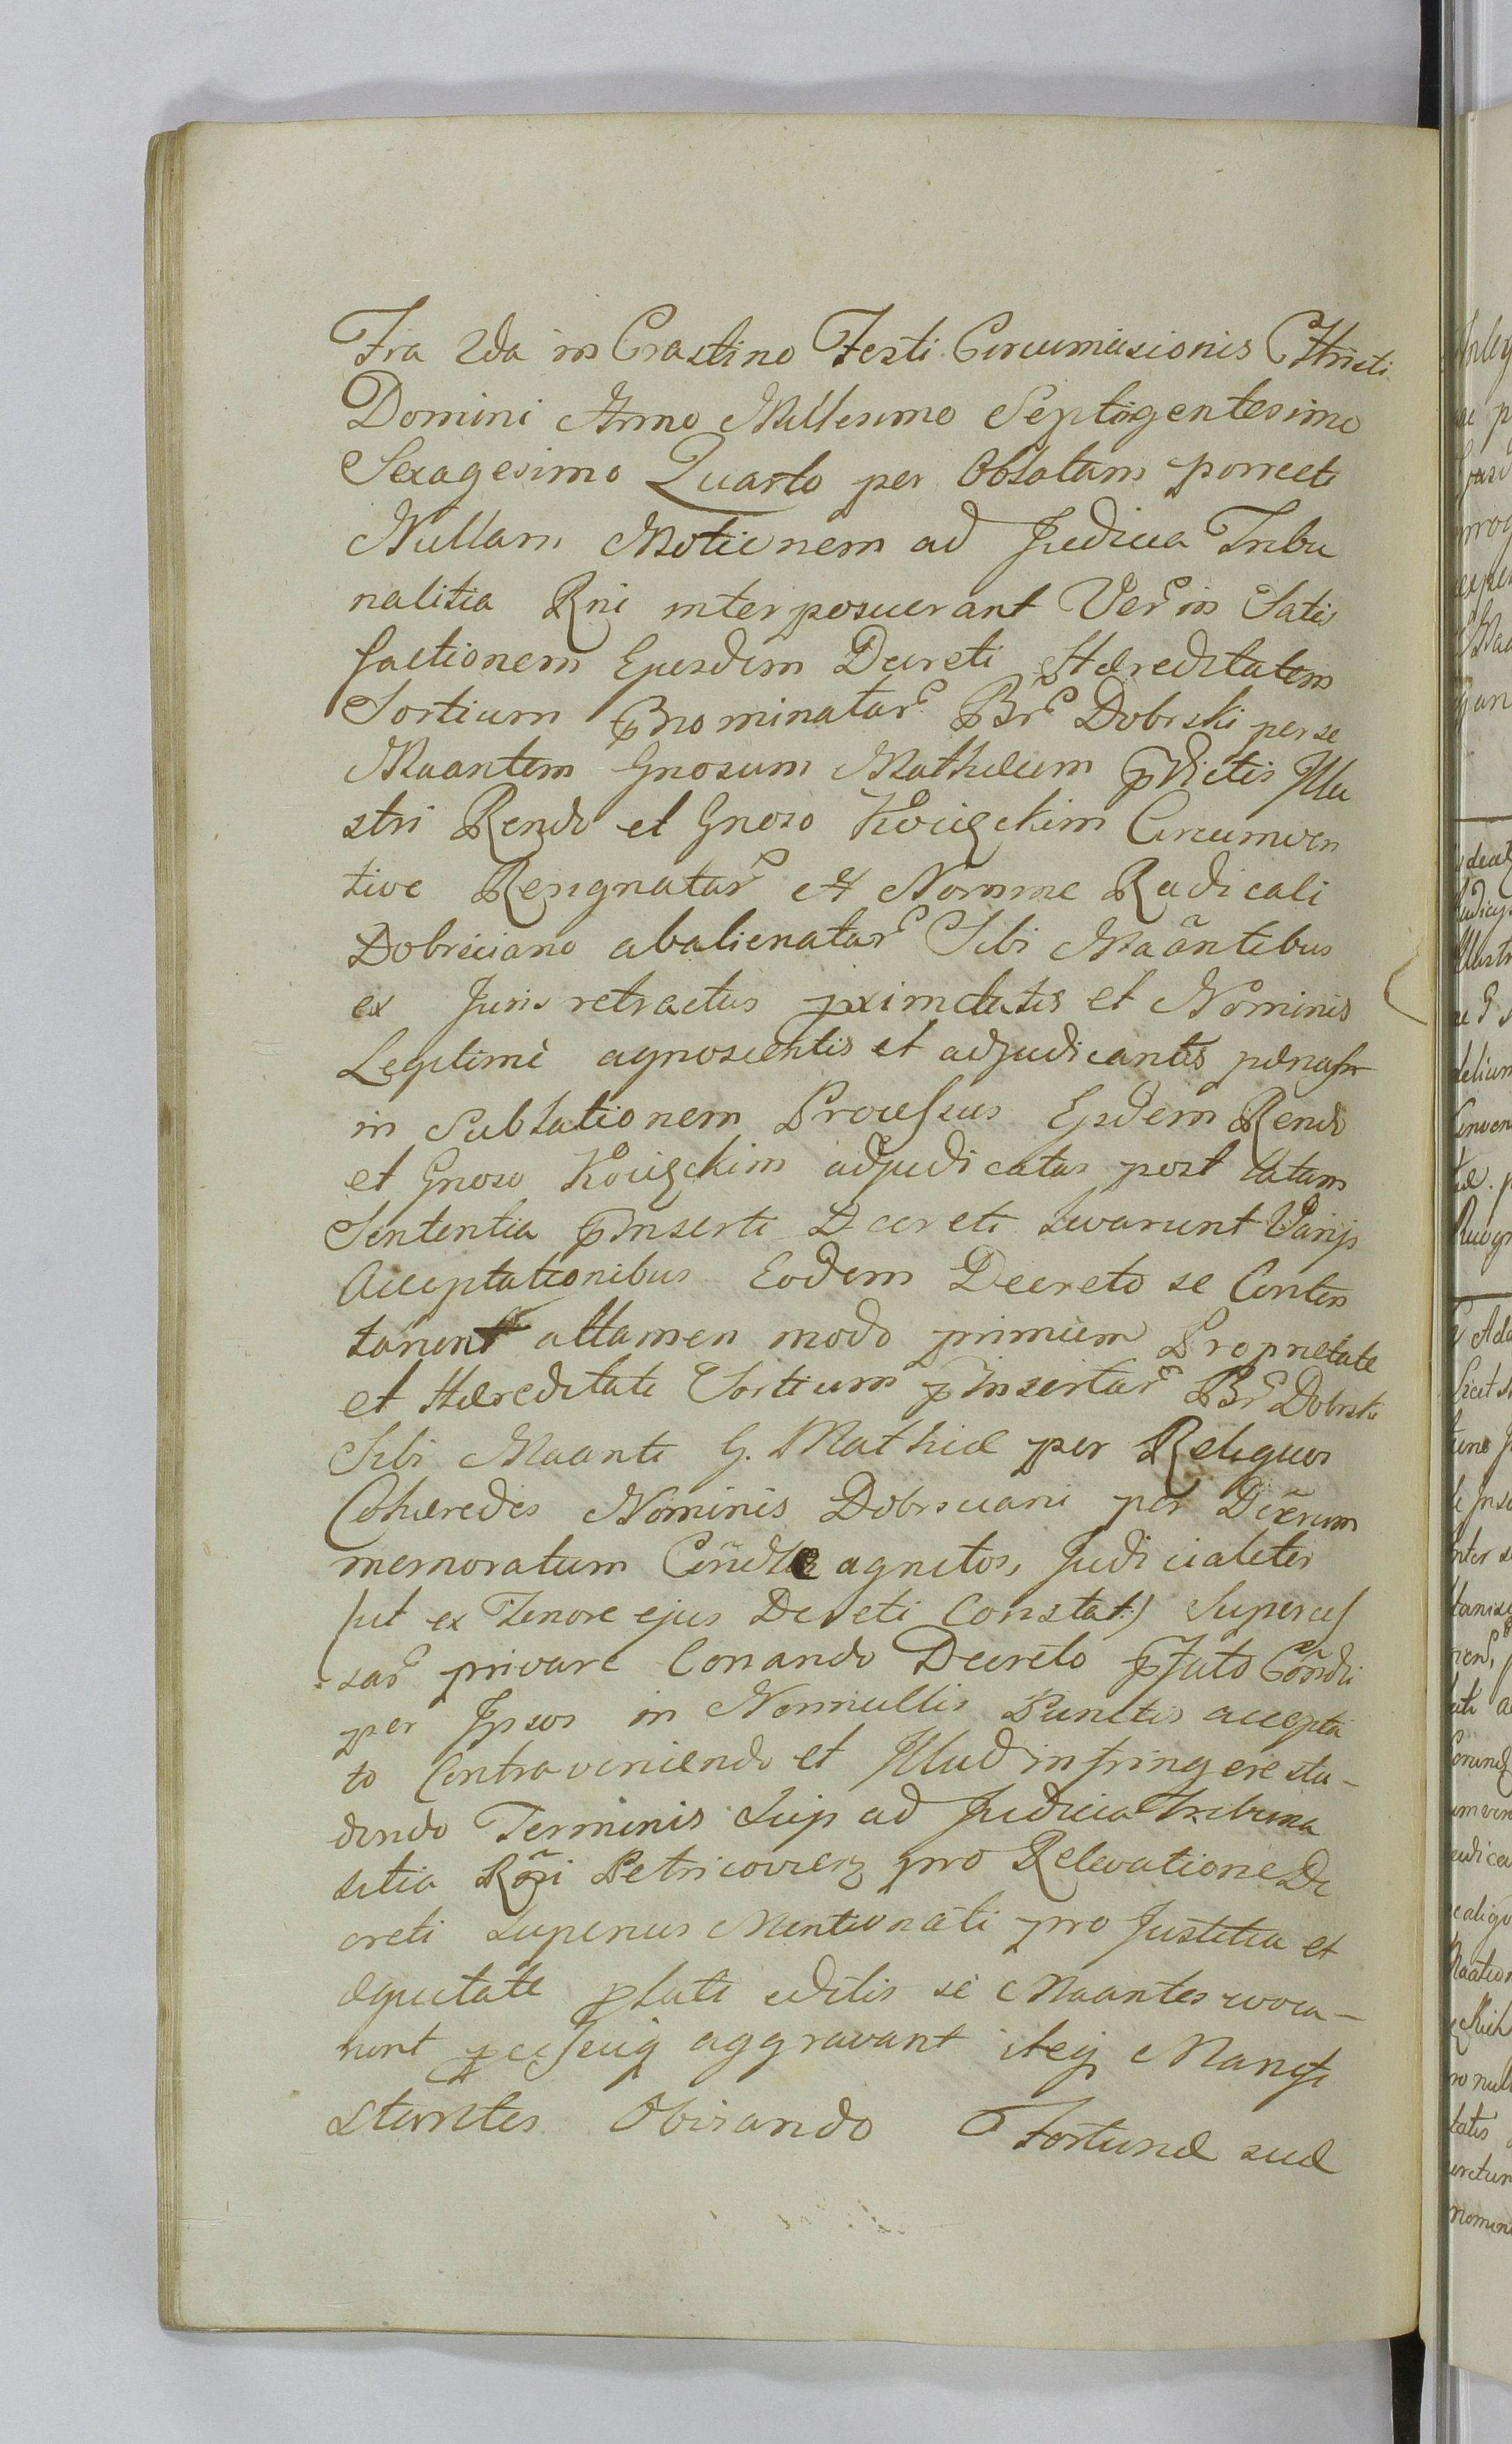 Fra 2da in Crastino Festi Circumcisionis Christi
Domini Anno Millesimo Septigentesimo
Sexagesimo Quarto per Oblatam porrecti
Nullam Motionem ad Judicia Tribu
nalitia Rni interposuerant Verm in Satis
factionem Ejusdem Decreti Hæreditatem
Sortium prnominatar Br Dobrski per se
Maantem Gnosum Mathæum prdictis Illu
stri Rendo et Gnoso Koiszckim Circumven
tive Resignatar et Nomine Radicali
Dobrsciano abalienatar Sibi Maãntibus
ex Juris retractus pximitatis et Nominis
Legitimè agnoscentis et adjudicantis
in Sublationem Processus Ejsdem Rendo
et Gnoso Koiszckim adjudicatas post latam
Sententia prInserti Decreti levarunt Varijs
Acceptationibus Eodem Decreto se Conten
tarunt attamen modo primum Proprietate
et Hæreditate Sortium pInsertar Br Dobrski
Sibi Maanti G. Mathiæ per Reliquos
Cohæredes Nominis Dobrsciani per Dcrum
memoratum agnitos, Judicialiter
(ut ex Tenore ejus Decreti Constat:) Supercess
sar privare Conando Decreto prfato Condi
per Ipsos in Nonnullis Punctis accepta
to Contraveniendo et Illud infringere stu-
dendo Terminis Suis ad Judicia Tribuna
litia Rgni Petricovien pro Relevatione De
creti Superius Mentionati pro Justitia et
æquitate plati editis se Maantes voca-
runt aggravant itaq Manife
stantes Obviando Fortunæ suæ